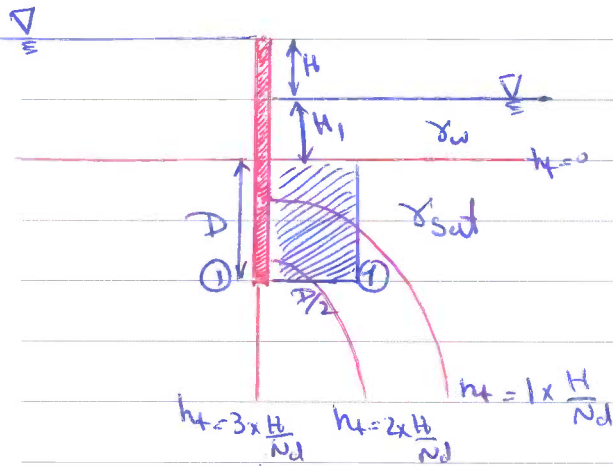 H
H₁
γw
ht=0
D
γsat
① ①
D/2
ht = 3 × H/Nd
ht = 2 × H/Nd
ht = 1 × H/Nd